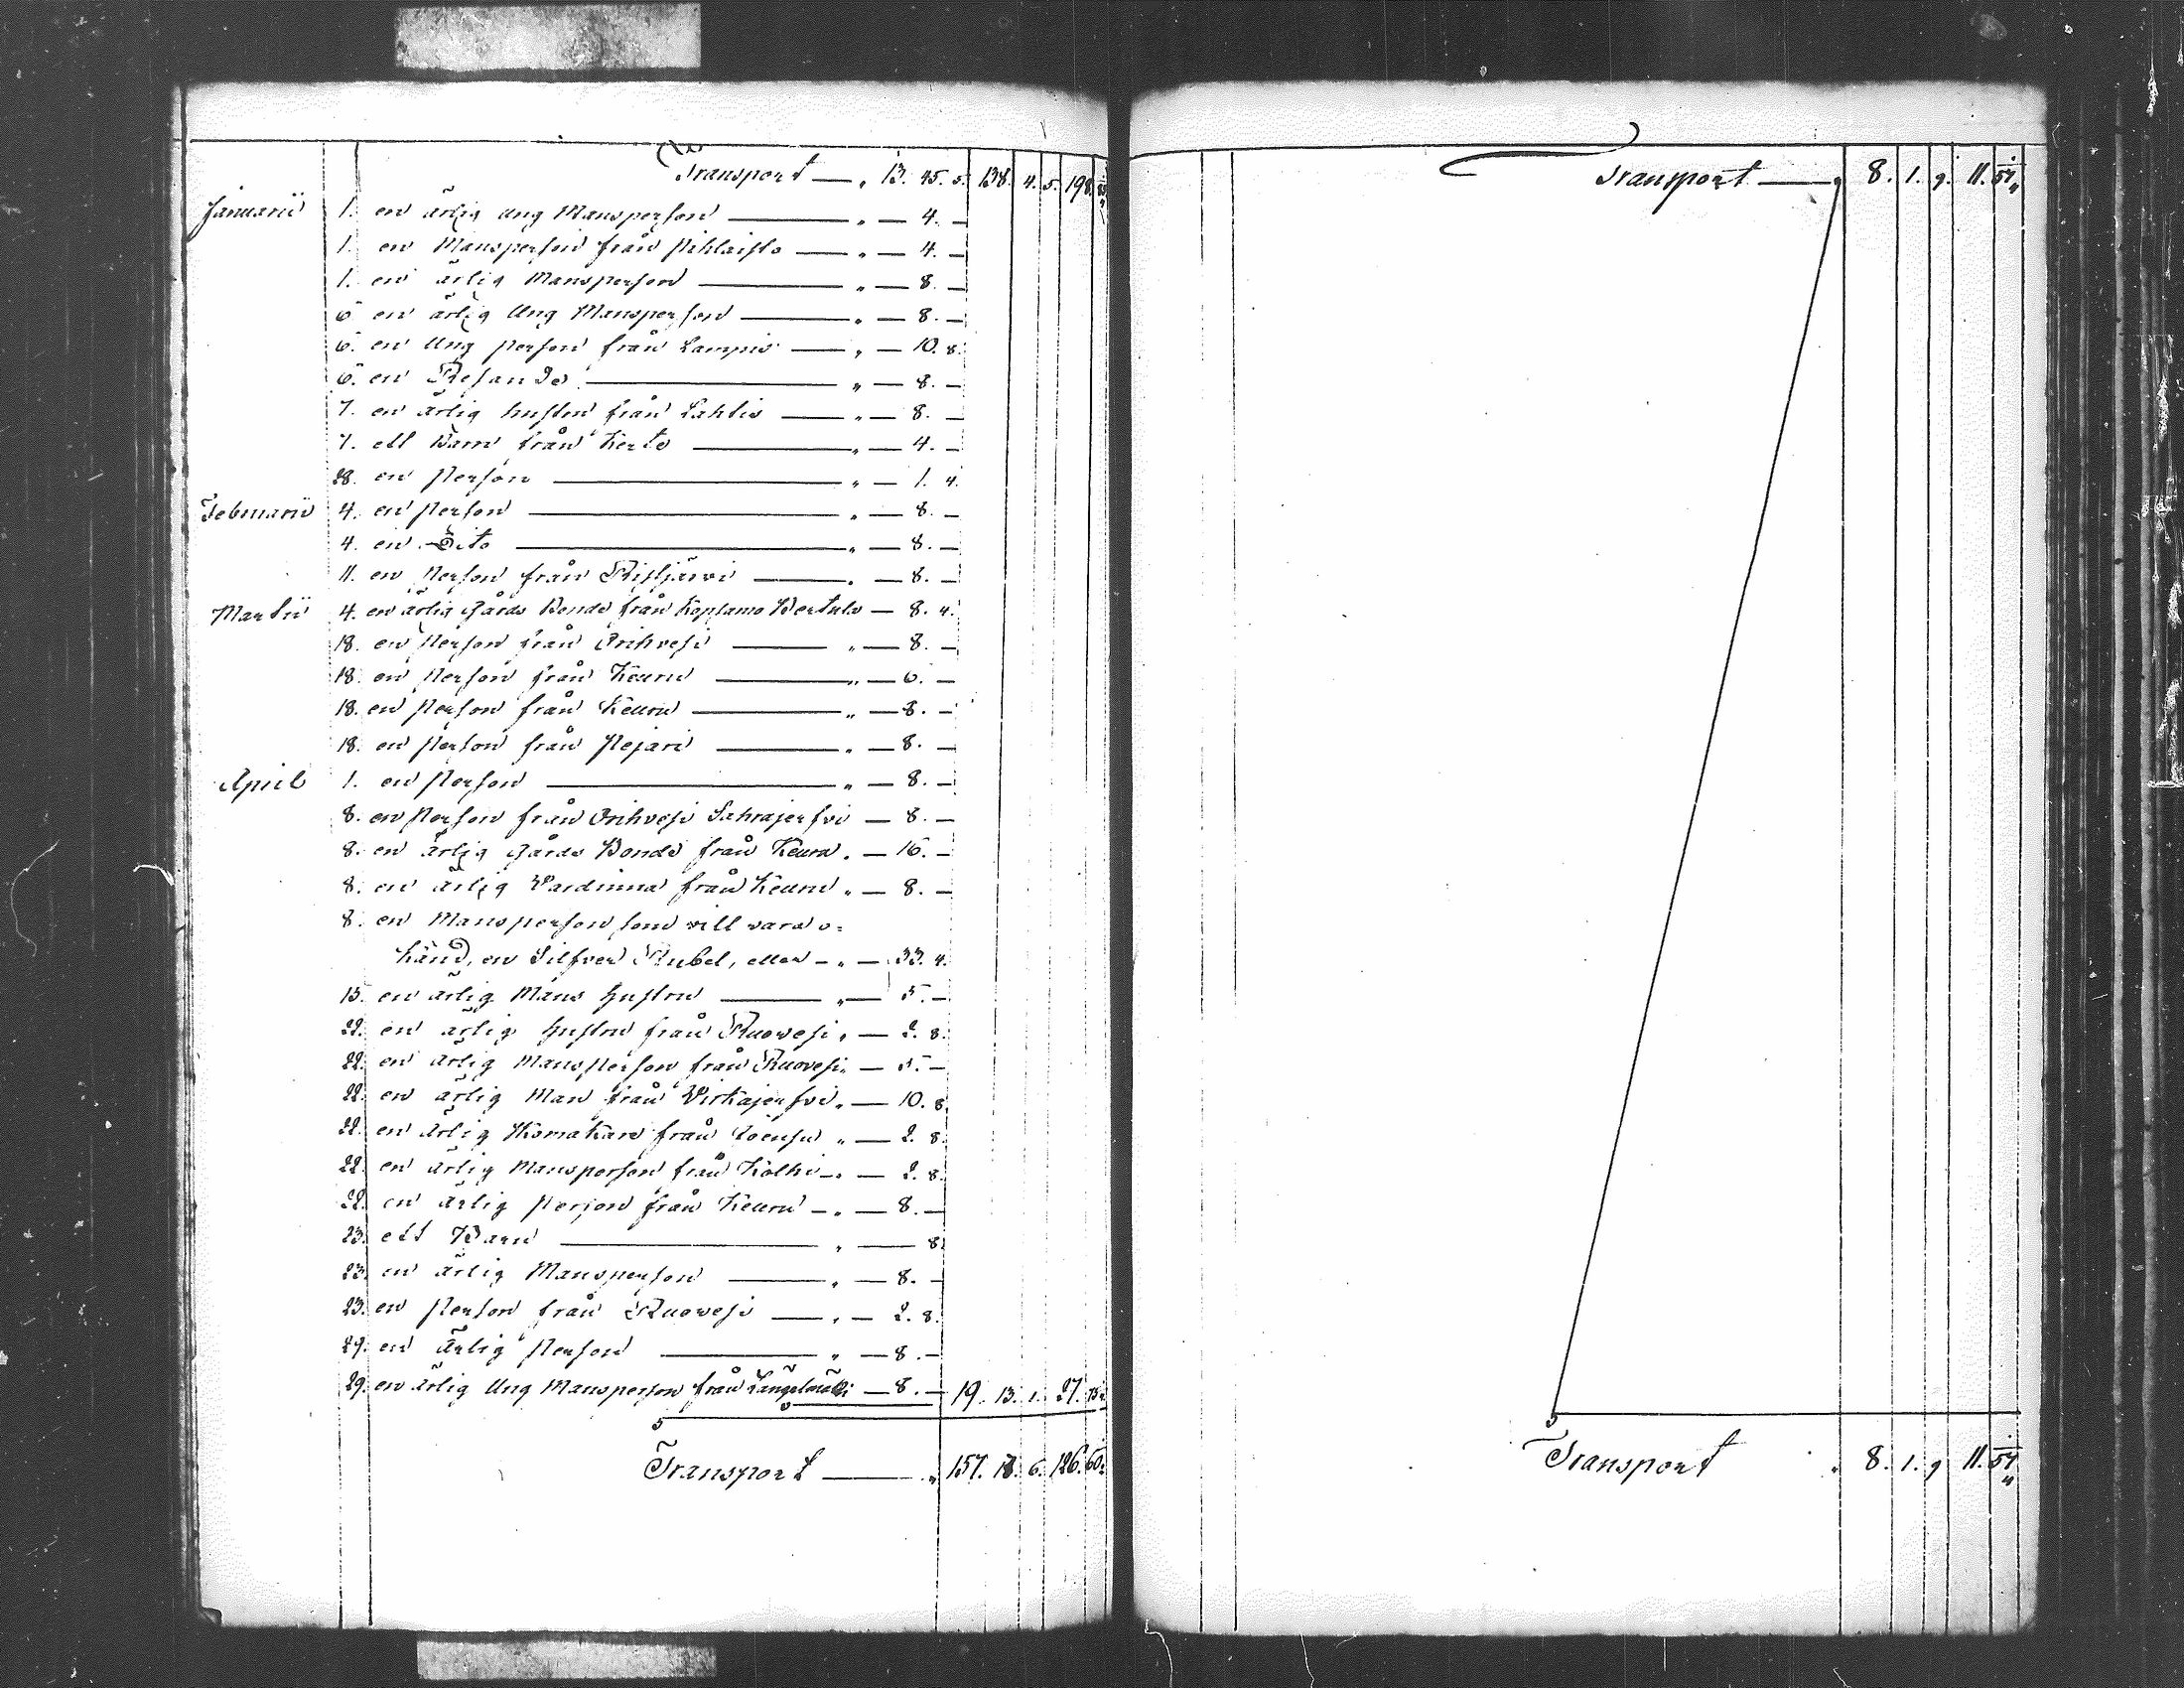 Transport — „ 13. 45. 5. 138. 4. 5. 198.
Januarii 1. en ärlig ung Mansperson — „ — 4. —
1. en Mansperson från Pihlaisto — „ — 4. —
1. en ärlig Mansperson — „ — 8. —
6. en ärlig Ung Mansperson — „ — 8. —
6. en Ung person från Lampis — „ — 10. 8.
6. en Resande — „ — 8. —
7. en ärlig hustru från Lahtis — „ — 8. —
7. ett Barn från — „ — 4. —
28. en Person — „ — 1. 4.
Februarii 4. en Person — „ — 8. —
4. en Dito — „ — 8. —
11. en Person från Ristjärvi — „ — 8. —
Martii 4. en ärlig Gårds Bonde från Koplamo Bertula — 8. 4.
18. en Person från Orihvesi — „ — 8. —
18. en Person från Keuru — „ — 6. —
18. en Person från Keuru — „ — 8. —
18. en Person från Pejari — „ — 8. —
April 1. en Person — „ — 8. —
8. en Person från Orihvesi Sahrajerfvi — 8. —
8. en ärlig Gårds Bonde från Keuru „ — 16. —
8. en ärlig Värdinna från Keuru „ — 8. —
8. en Mansperson som vill vara o=
känd, en Silfver Rubel, eller — „ — 33. 4.
15. en ärlig Mans hustru — „ — 5. —
22. en ärlig hustru från Ruovesi „ — 2. 8.
22. en ärlig Mansperson från Ruovesi „ — 5. —
22. en ärlig Man från Virkajerfvi „ — 10. 8.
22. en ärlig Skomakare från „ — 2. 8.
22. en ärlig Mansperson från Kolhi — „ — 2. 8.
22. en ärlig Person från Keuru — „ — 8. —
23. ett Barn — „ — 8.
23. en ärlig Mansperson — „ — 8. —
23. en Person från Ruovesi — „ — 2. 8.
29. en ärlig Person — „ — 8. —
29. en ärlig Ung Mansperson från Längelmäki — 8. — 19. 13. 1. 27.
Transport — „ 157. 18. 6. 126. 60.
Transport — „ 8. 1. 9. 11. 54
Transport „ 8. 1. 9. 11. 54